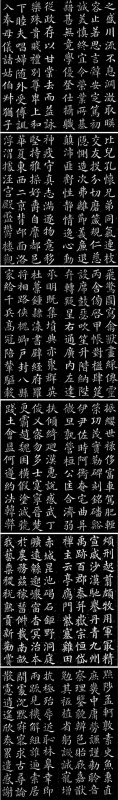 之盛川流不息淵澄取映
容止若思言辭安定篤初
誠美慎終宜令榮業所基
籍甚無竟學優登仕攝職
從政存以甘棠去而益詠
樂殊貴賤禮別尊卑上和
下睦夫唱婦隨外受傅訓
入奉母儀諸姑伯叔猶子
比兒孔懷兄弟同氣連枝
交友投分切磨箴規仁慈
隱惻造次弗離節義廉退
顛沛匪虧性靜情逸心動
神疲守真志滿逐物意移
堅持雅操好爵自縻都邑
華夏東西二京背邙面洛
浮渭據涇宮殿盤鬱樓觀
飛驚圖寫禽獸畫綵仙靈
丙舍傍啓甲帳對楹肆筵
設席鼓瑟吹笙升階納陛
弁轉疑星右通廣內左達
承明既集墳典亦聚群英
杜稾鍾隸漆書壁經府羅
將相路俠槐卿戶封八縣
家給千兵高冠陪輦驅轂
振纓世祿侈富車駕肥輕
策功茂實勒碑刻銘磻溪
伊尹佐時阿衡奄宅曲阜
微旦孰營桓公匡合濟弱
扶傾綺迴漢惠說感武丁
俊乂密勿多士寔寧晉楚
更霸趙魏困橫假途滅虢
踐土會盟何遵約法韓弊
煩刑起翦頗牧用軍最精
宣威沙漠馳譽丹青九州
禹跡百郡秦并嶽宗恒岱
禪主云亭鴈門紫塞雞田
赤城昆池碣石鉅野洞庭
曠遠綿邈巖岫杳冥治本
於農務茲稼穡俶載南畝
我藝黍稷稅熟貢新勸賞
黜陟孟軻敦素史魚秉直
庶幾中庸勞謙謹勑聆音
察理鑒貌辨色貽厥嘉猷
勉其祗植省躬譏誡寵增
抗極殆辱近恥林皋幸即
兩疏見機解組誰逼索居
閒處沉默寂寥求古尋論
散慮逍遙欣奏累遣慼謝